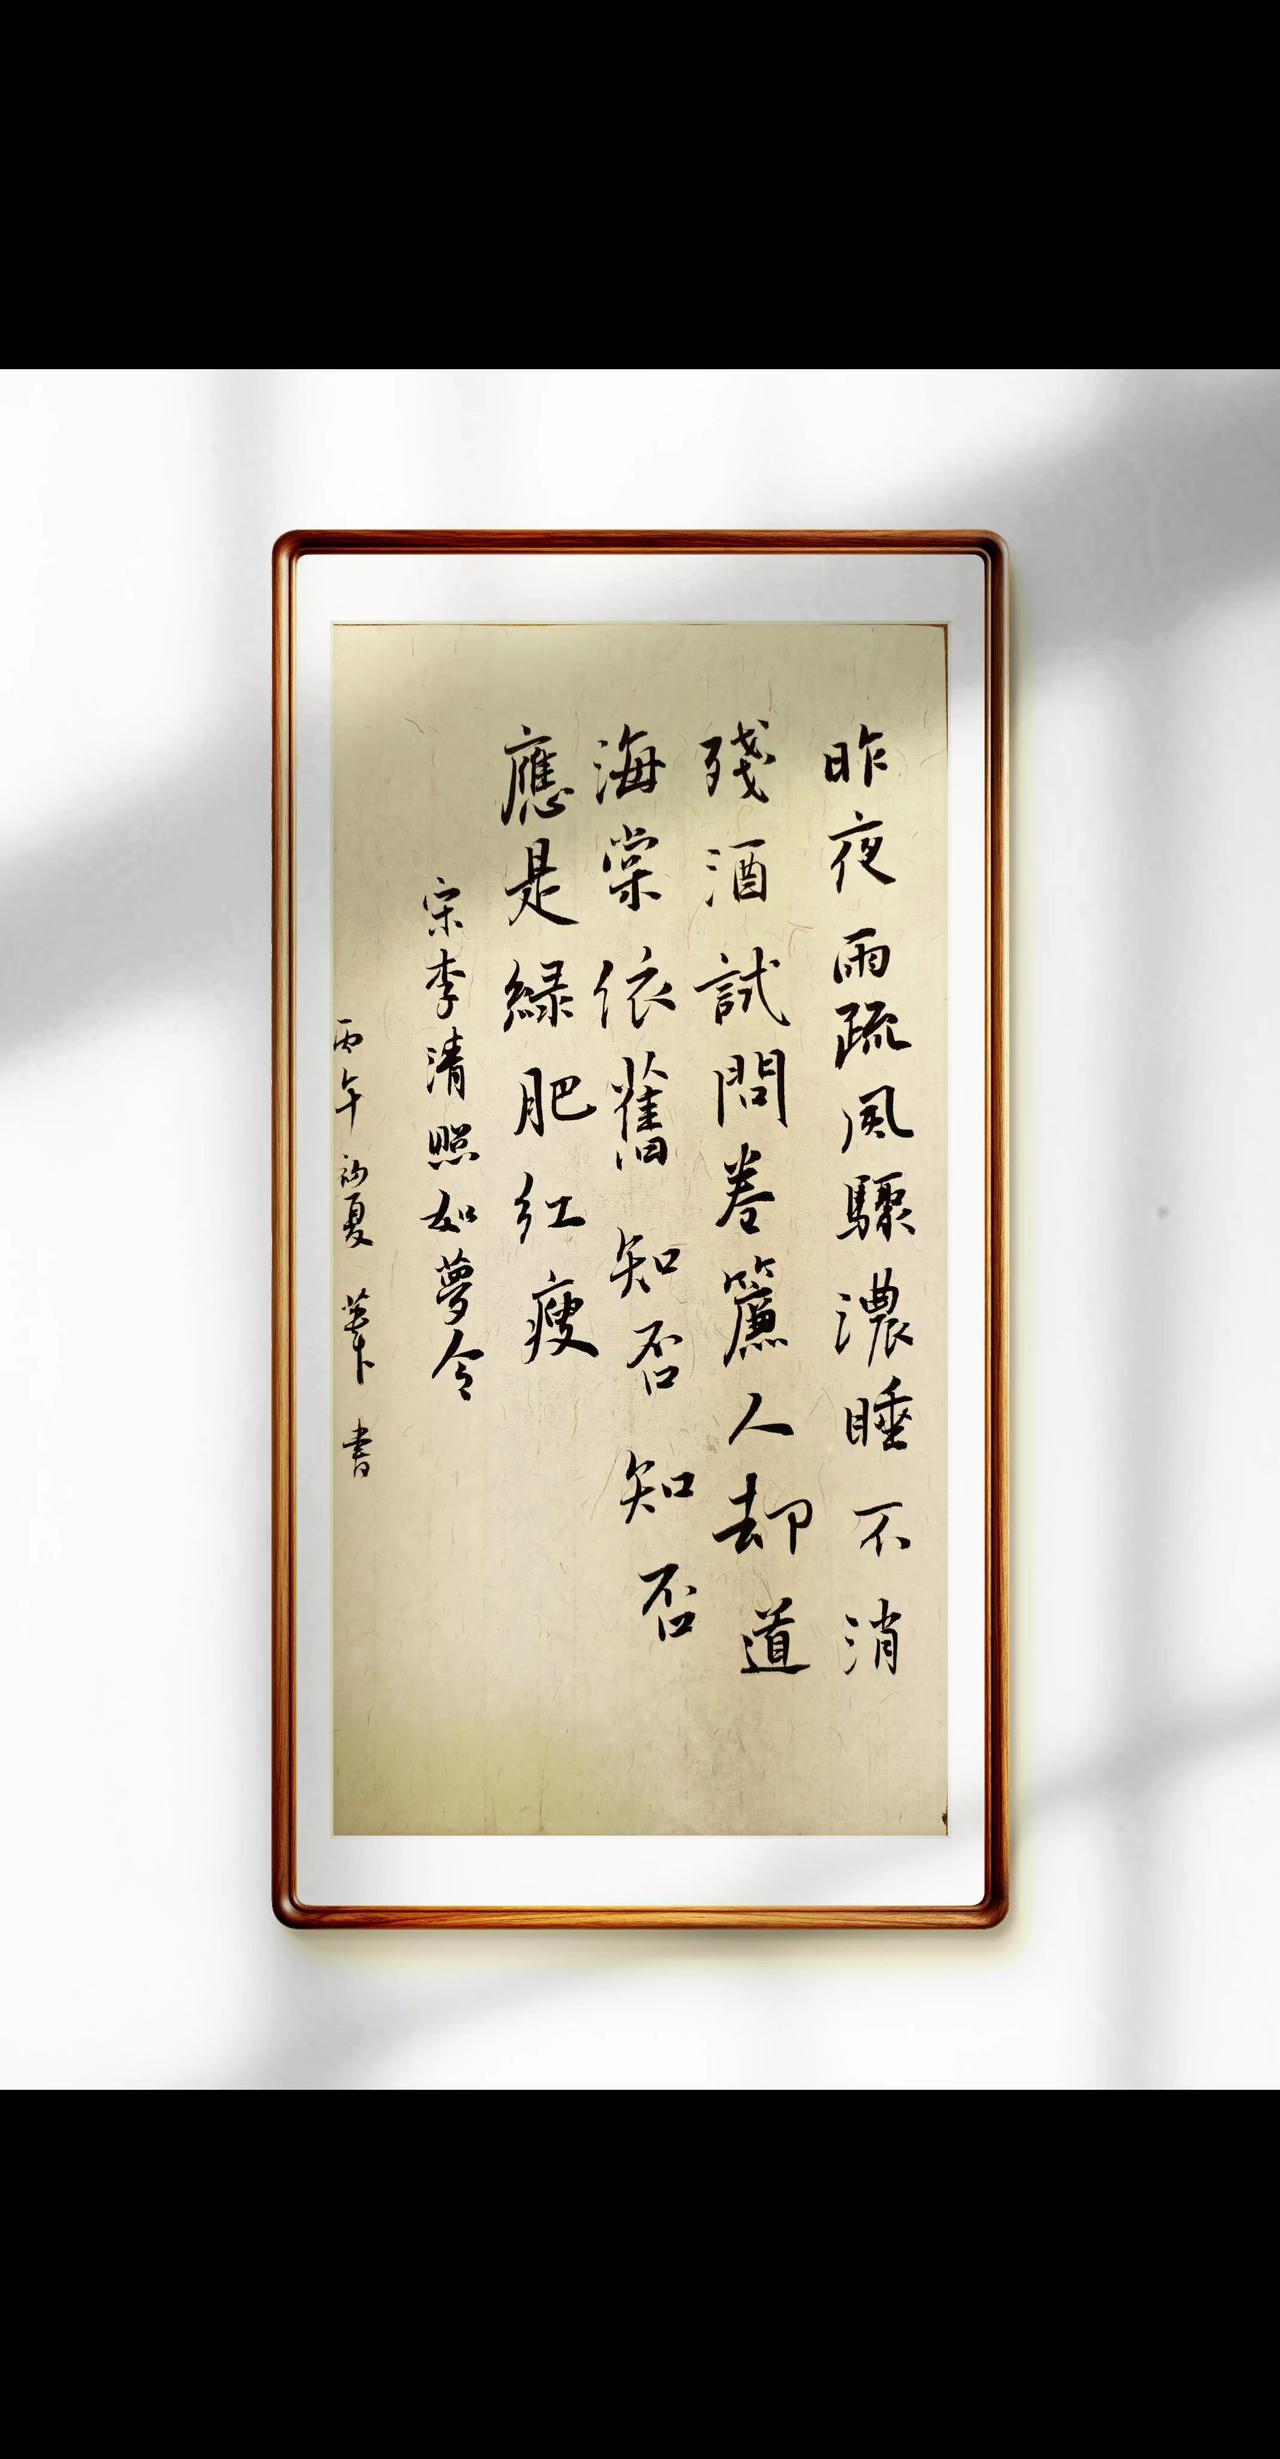 昨夜雨疏風驟濃睡不消
殘酒試問卷簾人却道
海棠依舊知否知否
應是緑肥紅瘦
宋李清照如夢令
丙午初夏 書